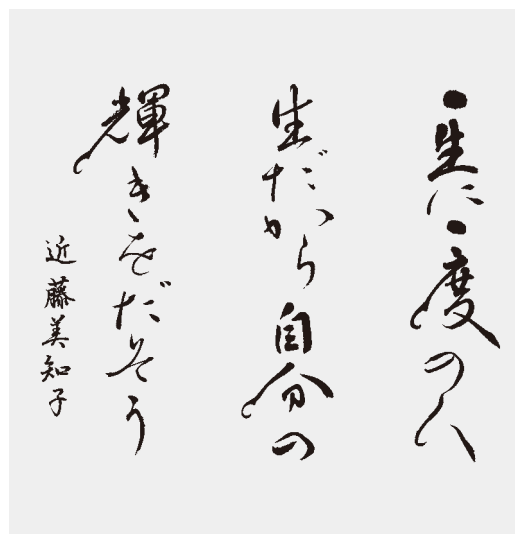 一生に一度の人
生だから自分の
輝きをだそう
近藤美知子